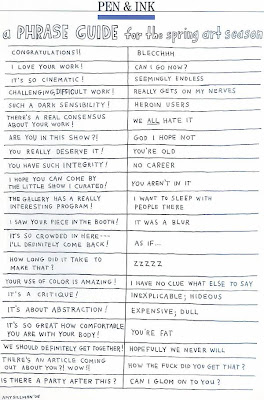 PEN & INK
a PHRASE GUIDE for the spring art season
CONGRATULATIONS!! BLECCHHH
I LOVE YOUR WORK! CAN I GO NOW?
IT'S SO CINEMATIC! SEEMINGLY ENDLESS
CHALLENGING, DIFFICULT WORK! REALLY GETS ON MY NERVES
SUCH A DARK SENSIBILITY! HEROIN USERS
THERE'S A REAL CONSENSUS
ABOUT YOUR WORK! WE ALL HATE IT
ARE YOU IN THIS SHOW?! GOD I HOPE NOT
YOU REALLY DESERVE IT! YOU'RE OLD
YOU HAVE SUCH INTEGRITY! NO CAREER
I HOPE YOU CAN COME BY
THE LITTLE SHOW I CURATED! YOU AREN'T IN IT
THE GALLERY HAS A REALLY I WANT TO SLEEP WITH
INTERESTING PROGRAM! PEOPLE THERE
I SAW YOUR PIECE IN THE BOOTH! IT WAS A BLUR
IT'S SO CROWDED IN HERE---
I'LL DEFINITELY COME BACK! AS IF...
HOW LONG DID IT TAKE TO
MAKE THAT? ZZZZZ
YOUR USE OF COLOR IS AMAZING! I HAVE NO CLUE WHAT ELSE TO SAY
IT'S A CRITIQUE! INEXPLICABLE; HIDEOUS
IT'S ABOUT ABSTRACTION! EXPENSIVE; DULL
IT'S SO GREAT HOW COMFORTABLE
YOU ARE WITH YOUR BODY! YOU'RE FAT
WE SHOULD DEFINITELY GET TOGETHER! HOPEFULLY WE NEVER WILL
THERE'S AN ARTICLE COMING
OUT ABOUT YOU?! WOW!! HOW THE FUCK DID YOU GET THAT?
IS THERE A PARTY AFTER THIS? CAN I GLOM ON TO YOU?
AMY SILLMAN